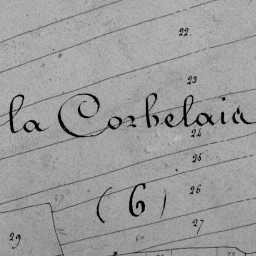 22
23
la Corbelaia
24
25
(6)
26
27
29